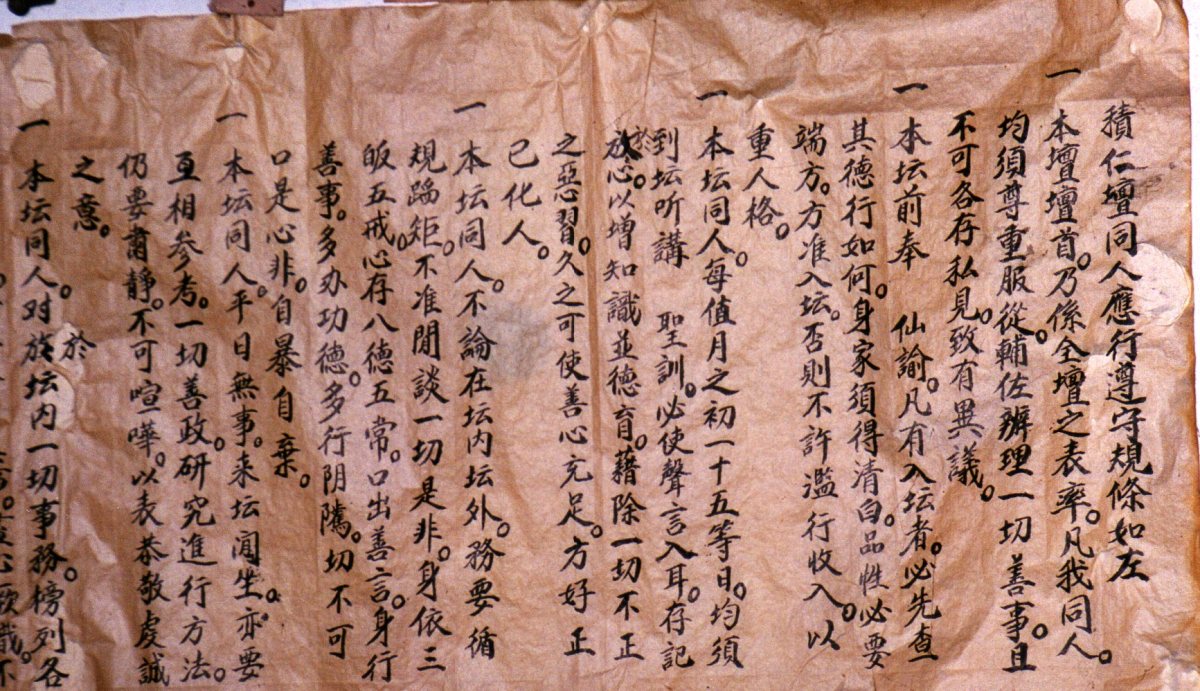 積仁壇同人應行遵守規條如左
一 本壇壇首。乃係全壇之表率。凡我同人。
均須尊重服從。輔佐辦理一切善事。且
不可各存私見。致有異議。
一 本坛前奉 仙諭。凡有入坛者。必先查
其德行如何。身家須得清白。品性必要
端方。方准入坛。否則不許濫行收入。以
重人格。
一 本坛同人。每值月之初一十五等日。均須
到坛听講 聖訓。必使聲言入耳。存記
於心。以增知識並德育。藉除一切不正
之惡習。久之可使善心充足。方好正
已化人。
一 本坛同人。不論在坛内坛外。務要循
規蹈矩。不准閒談一切是非。身依三
皈五戒。心存八德五常。口出善言。身行
善事。多办功德。多行阴隲。切不可
口是心非。自暴自棄。
一 本坛同人。平日無事。来坛闲坐。亦要
互相参考。一切善政。研究進行方法。
仍要肅靜。不可喧嘩。以表恭敬虔誠
之意。
一 本坛同人。对於坛内一切事務。榜列各